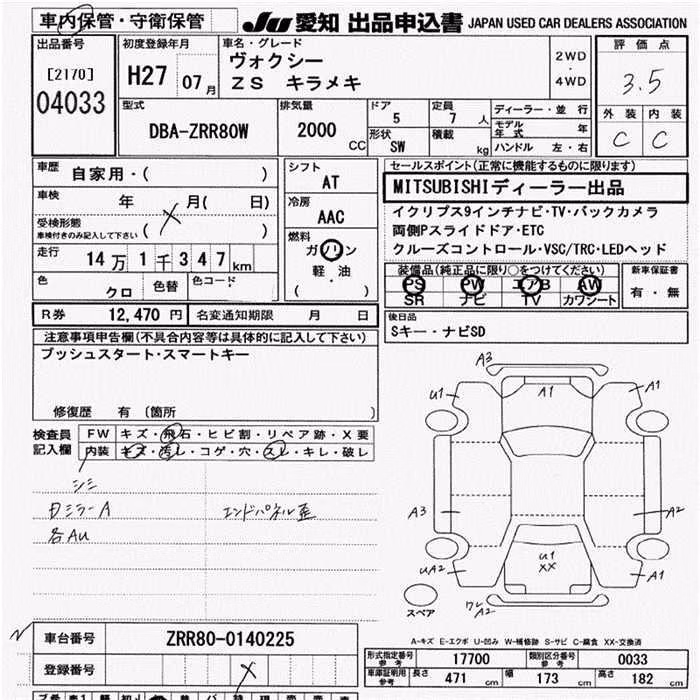 車内保管・守衛保管
JU 愛知 出品申込書 JAPAN USED CAR DEALERS ASSOCIATION
出品番号
[2170]
04033
初度登録年月
H27 07月
車名・グレード
ヴォクシー
ZS キラメキ
2WD
・
4WD
評価点
3.5
外装 内装
C C
型式
DBA-ZRR80W
排気量
2000 CC
ドア
5
形状
SW
定員
7 人
積載
kg
ディーラー・並行
モデル年式 年
ハンドル 左・右
車歴
自家用・( )
車検
年 月( 日)
受検形態
車検付きのみ記入して下さい ( )
走行
14万1千347km
色
クロ
色替
色コード
シフト
AT
冷房
AAC
燃料
ガソリン
軽・油
( )
セールスポイント(正常に機能するものに限ります)
MITSUBISHIディーラー出品
イクリプス9インチナビ・TV・バックカメラ
両側Pスライドドア・ETC
クルーズコントロール・VSC/TRC・LEDヘッド
装備品(純正品に限り○をつけてください)
PS PW エアB AW
SR ナビ TV カワシート
新車保証書
有・無
R券 12,470 円 名変通知期限 月 日
後日品
Sキー・ナビSD
注意事項申告欄(不具合内容等は具体的に記入して下さい)
プッシュスタート・スマートキー
修復歴 有 (箇所 )
検査員記入欄
FW キズ・飛石・ヒビ割・リペア跡・X要
内装 キズ・汚レ・コゲ・穴・スレ・キレ・破レ
シミ
日ミラーA エンドパネル歪
各AU
A3
U1
A1
A1
A3
A2
U1
XX
UA2
A1
ワレ
A2
スペア
A-キズ E-エクボ U-凹み W-補修跡 S-サビ C-腐食 XX-交換済
車台番号 ZRR80-0140225
登録番号
形式指定番号 参考 17700 類別区分番号 参考 0033
車庫証明用 参考 長さ 471 cm 幅 173 cm 高さ 182 cm